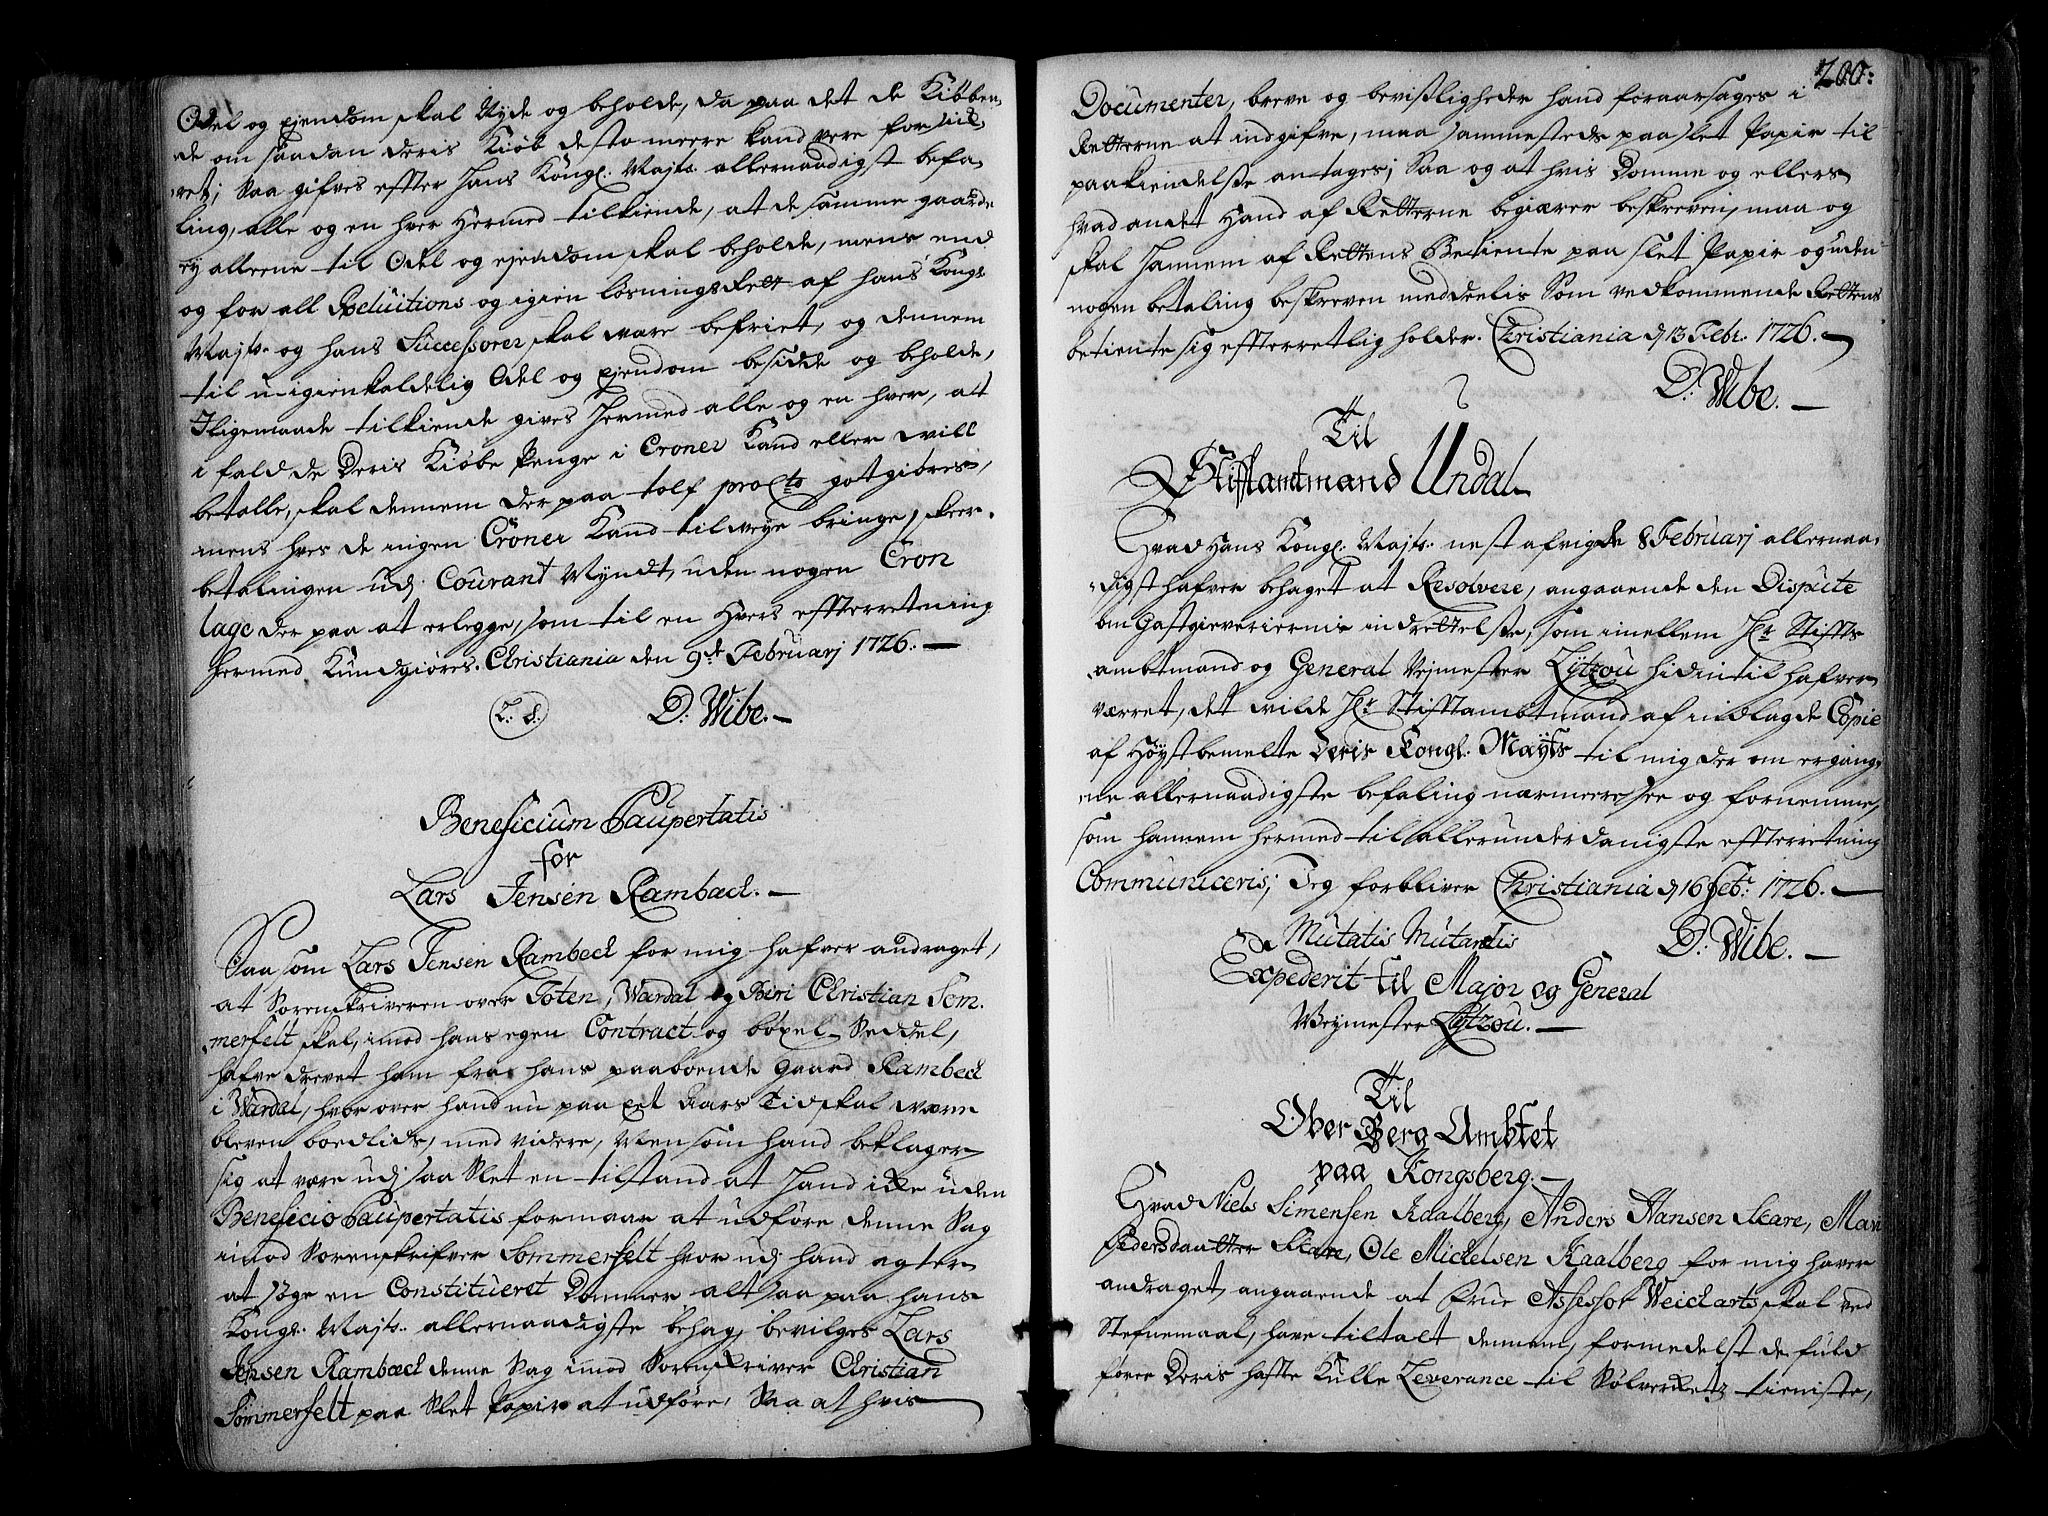 Odel og ejendom skal Nyde og beholde, da paa det de Kiöben,,
de om saadan deris Kiöb desto meere kand være forsik,,
ret; Saa gifves effter Hans Kongl: Majts: allernaadigst befa,,
ling, alle og en hver Hermed tilkiende, at de samme gaarde
ey alleene til Odel og ejendom skal beholde, mens end
og for all Reluitions og igien løsnings Rett af Hans Kongl:
Majts: og hans Successorer skal være befriet, og dennem
til uigienkaldelig Odel og ejendom besidde og beholde,
Iligemaade tilkiende gives Hermed alle og en hver, at
i fald de Deris Kiøbe Penge i Croner Kand eller vill
betalle, skal dennem der paa tolf procto gotgiøres,
mens hves de ingen Croner Kand tilveye bringe, skeer
betalingen udj Courant Myndt, uden nogen Cron
lage der paa at erlegge, som til en Hvers effterretening
Hermed Kundgiøres. Christiania den 9de Februarj 1726. —
L: S: D: Wibe. —
Beneficium Paupertatis
for
Lars Jensen Rambeck. —
Saa som Lars Jensen Rambeck for mig hafver andraget,
at Sorenskriveren over Toten, Wardal og Biri Christian Som,,
merfelt skal, imod hans egen Contract og böxel Seddel,
hafve drevet ham fra hans paaboende Gaard Rambeck
i Wardal, hvor over hand nu paa et Aars Tid skal være
bleven boedlids, med videre, Men som hand beklager
sig at være udj saa Slet en tilstand at Hand ikke uden
Beneficio Paupertatis formaar at udføre denne Sag
imod Sorenskrifver Sommerfelt hvor udj hand agter
at søge en Constitueret Dommer alt saa paa Hans
Kongl: Majts: allernaadigste behag, bevilges Lars
Jensen Rambeck denne Sag imod Sorenskriver Christian
Sommerfelt paa Slet Papir at udføre, Saa at hvis
200:
Documenter, breve og bevisligheder hand foraarsages i
Retterne at indgifve, maa sammesteds paa slet Papir til
paakiendelse antages; Saa og at hvis Domme og ellers
hvad andet Hand af Retterne begiærer beskreven, maa og
skal Hannem af Rettens Betiente paa slet Papir og uden
nogen betaling beskreven meddeelis Som vedkommende Rettens
betiente sig effterrettlig holder. Christiania d 13 Febr: 1726. —
D: Wibe. —
Til
Stifftamtmand Undal
Hvad Hans Kongl: Majts: nest afvigde 8 Februarj allernaa,,
digst hafver behaget at Resolvere, angaaende den Dispute
om Gastgieveriernis indrettelse, som imellem Hr Stiffts
ambtmand og General Vejmester Lytzou hidintil hafver
værret, det wilde Hr Stifftambtmand af indlagde Copie
af Høystbemelte Deris Kongl: Mayts til mig der om ergang,,
ne allernaadigste befaling nærmere see og fornemme,
som hannem hermed til allerunderdanigste effterretning
Communiceris, Jeg forbliver Christiania d 16 Febr: 1726. —
D: Wibe. —
Mutatis Mutandis
Expederit til Major og General
Weymester Lytzou. —
Til
Ober Berg Ambtet
paa Kongsberg. —
Hvad Niels Simensen Kaalberg, Anders Hansen Skare, Mari
Pedersdautter Skare, Ole Mickelsen Kaalberg for mig haver
andraget, angaaende at Frue Assessor Weicharts skal ved
Stefnemaal, have tiltalt dennem, formedelst de fuld
fører Deris hafte Kulle Leverance til Sølverkets tieniste,